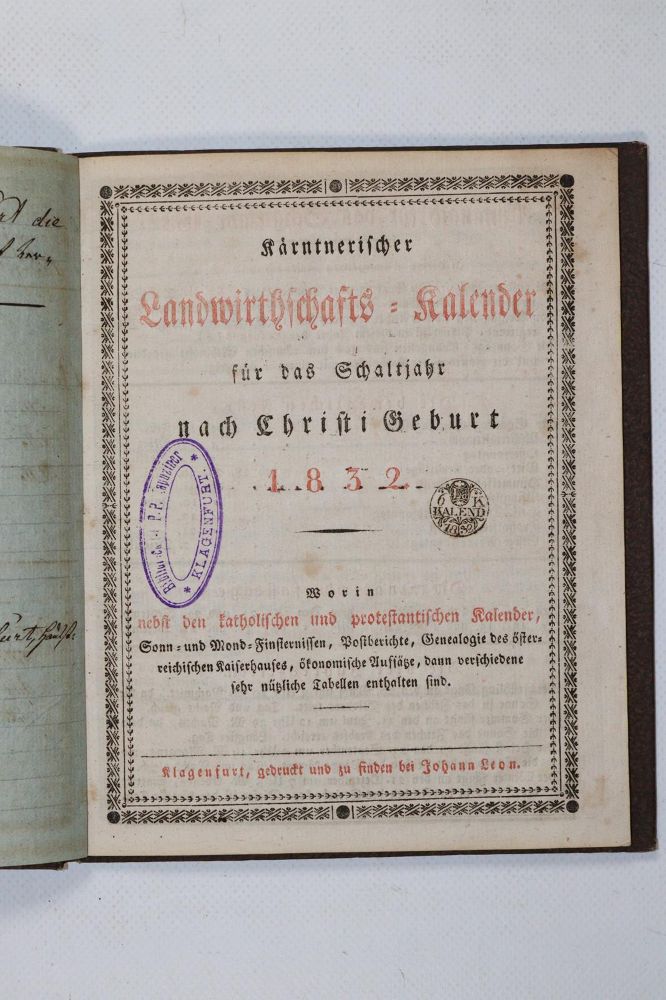 rt die
Kärntnerischer
Landwirthschafts-Kalender
für das Schaltjahr
nach Christi Geburt
1832.
6 K
KALEND
Bibliothek d. P. P. Kapuziner
* KLAGENFURT. *
Worin
nebst den katholischen und protestantischen Kalender,
Sonn- und Mond-Finsternissen, Postberichte, Genealogie des öster-
reichischen Kaiserhauses, ökonomische Aufsätze, dann verschiedene
sehr nützliche Tabellen enthalten sind.
Klagenfurt, gedruckt und zu finden bei Johann Leon.